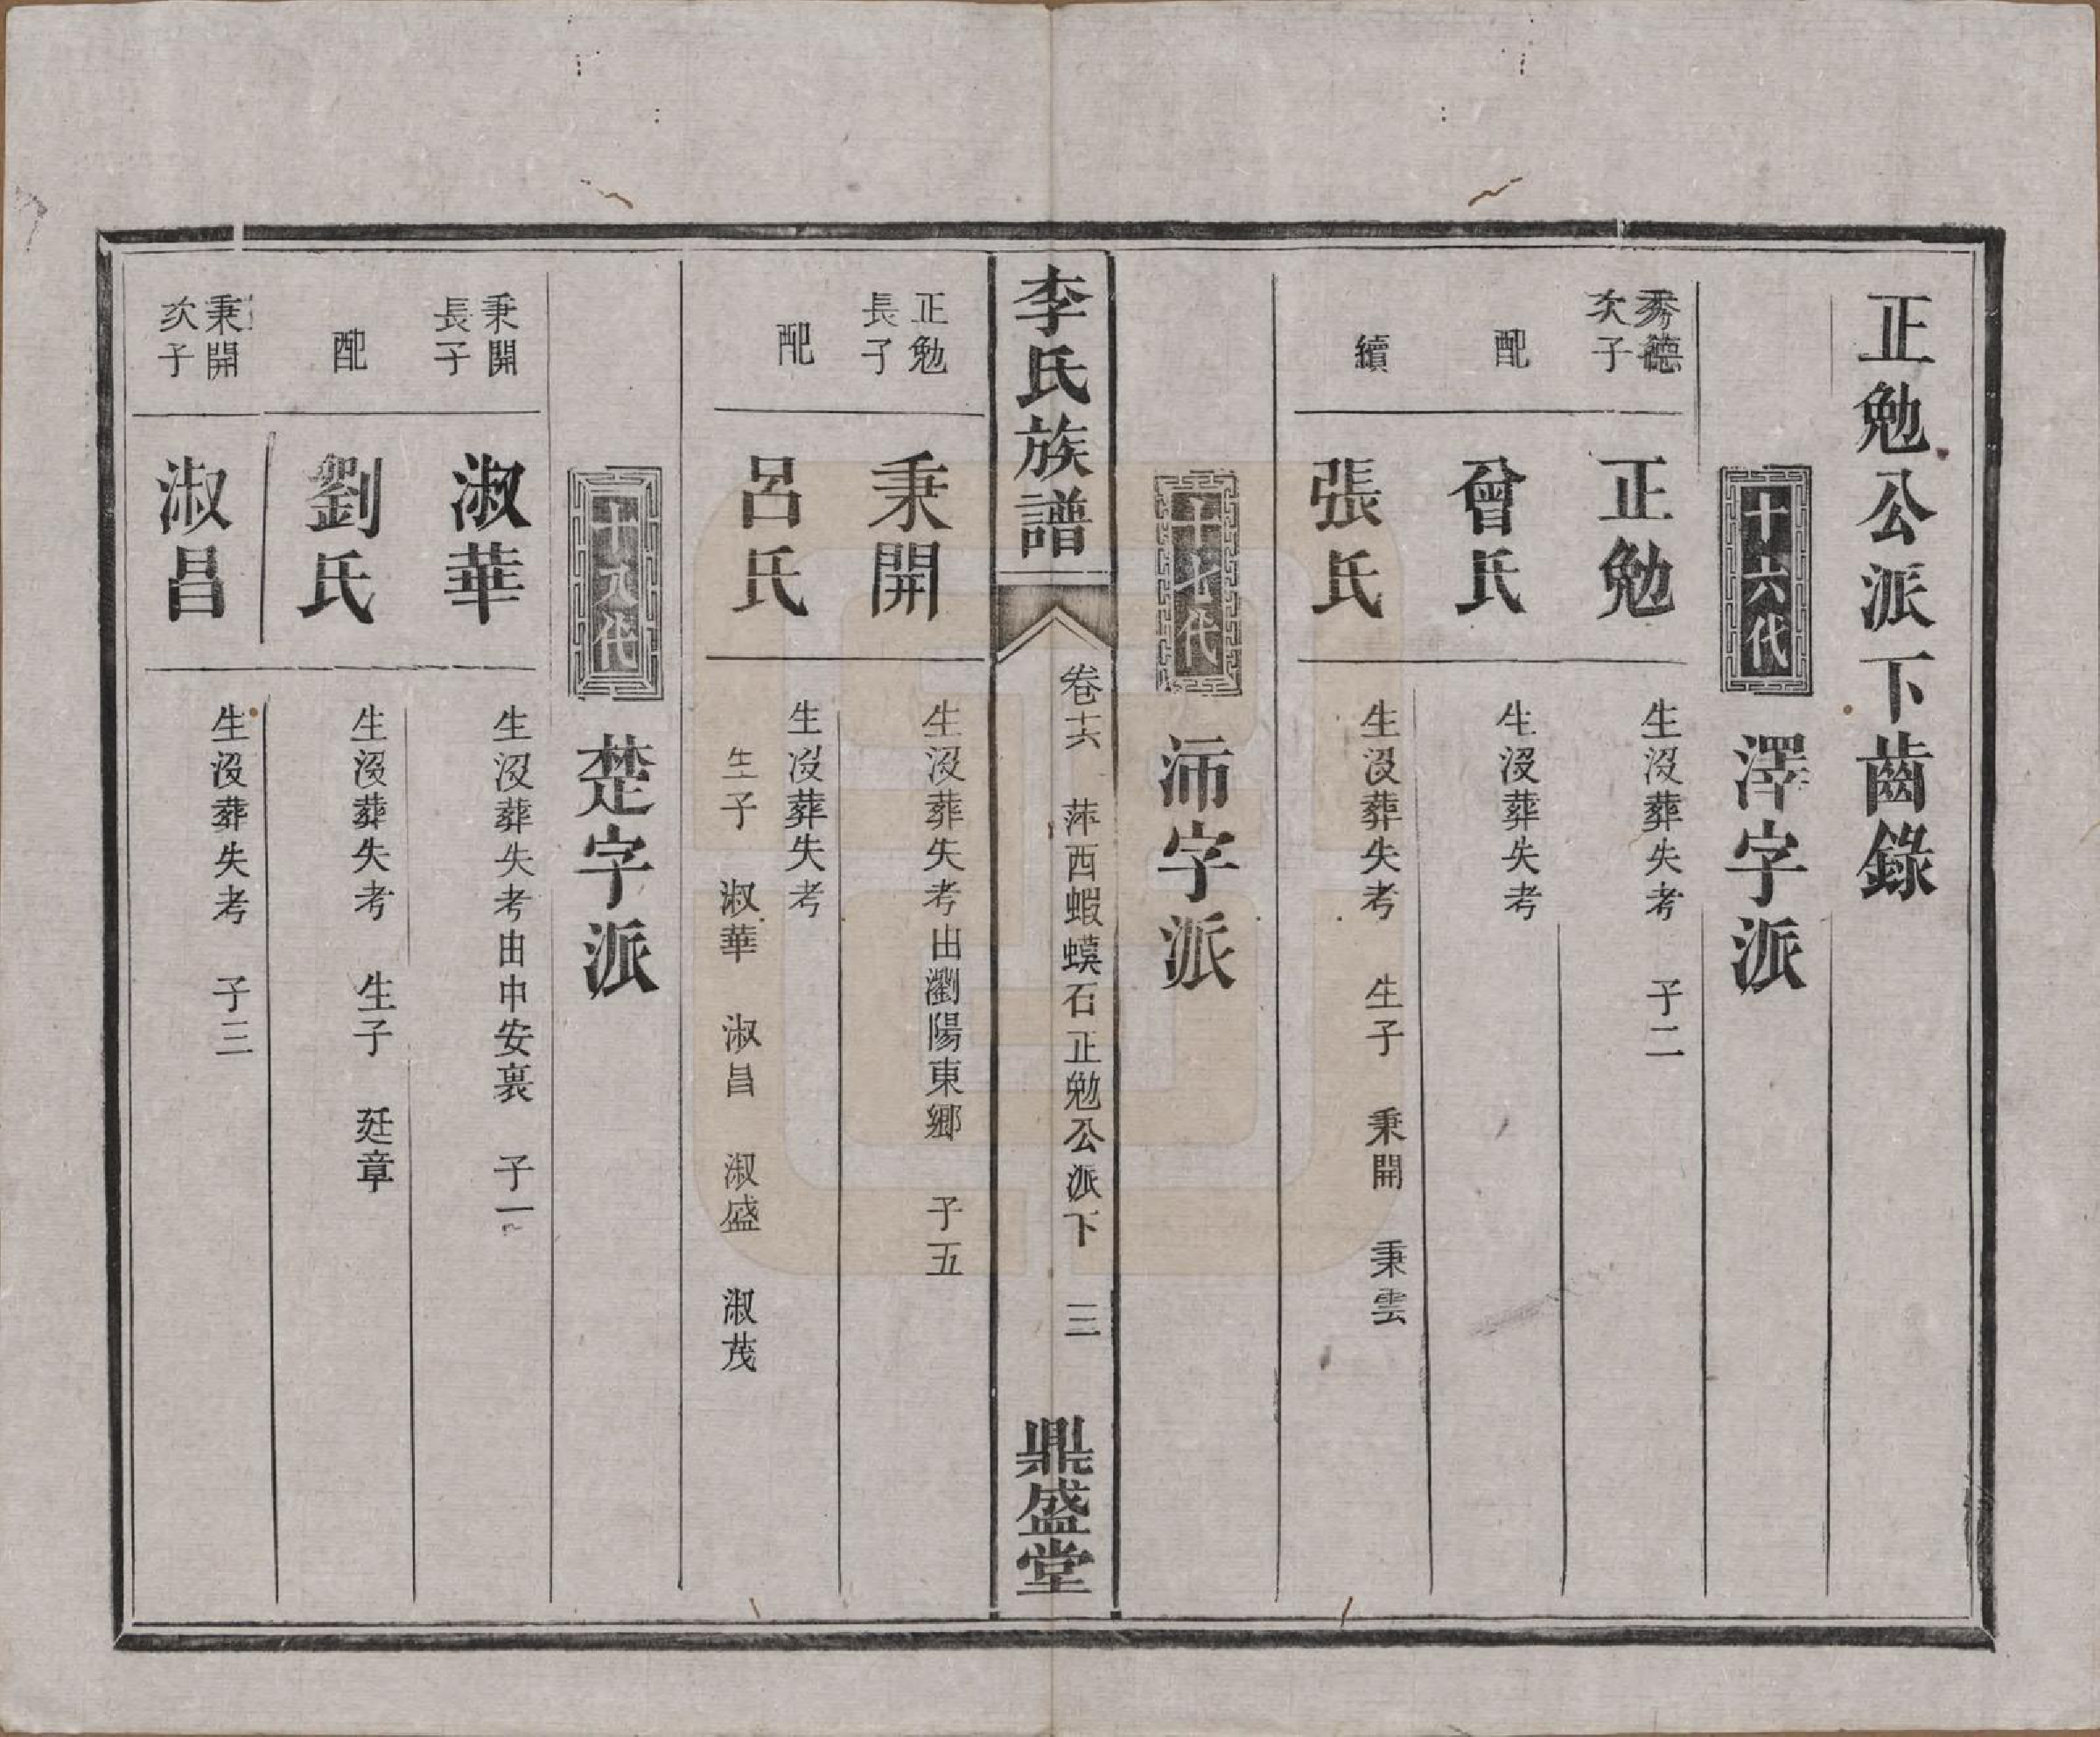 正勉公派下齒錄
十六代 澤字派
秀德次子 正勉 生沒葬失考 子二
配 曾氏 生沒葬失考
續 張氏 生沒葬失考 生子 秉開 秉雲
十七代 沛字派
李氏族譜 卷十六 萍西蝦蟆石正勉公派下 三 鼎盛堂
正勉長子 秉開 生沒葬失考由瀏陽東鄉 子五
配 呂氏 生沒葬失考
生子 淑華 淑昌 淑盛 淑茂
十八代 楚字派
秉開長子 淑華 生沒葬失考由申安裏 子一
配 劉氏 生沒葬失考 生子 廷章
秉開次子 淑昌 生沒葬失考 子三